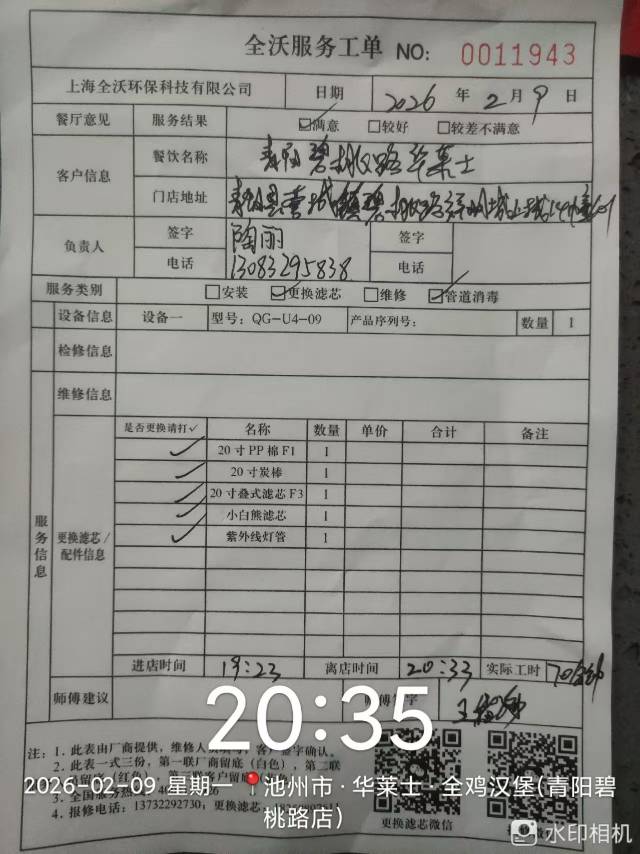 全沃服务工单 NO: 0011943
上海全沃环保科技有限公司 日期 2026 年 2 月 9 日
餐厅意见 服务结果 ☑满意 □较好 □较差不满意
客户信息 餐饮名称 青阳碧桃路华莱士
门店地址 青阳县蓉城镇碧桃路
负责人 签字 陶丽 签字
电话 13083295838 电话
服务类别 □安装 ☑更换滤芯 □维修 ☑管道消毒
服务信息
设备信息 设备一 型号: QG-U4-09 产品序列号: 数量 1
检修信息
维修信息
更换滤芯/配件信息
是否更换请打✓ 名称 数量 单价 合计 备注
✓ 20寸PP棉F1 1
✓ 20寸炭棒 1
✓ 20寸叠式滤芯F3 1
✓ 小白熊滤芯 1
✓ 紫外线灯管 1
进店时间 19:23 离店时间 20:33 实际工时 70分钟
师傅建议 师傅签字
20:35
注: 1. 此表由厂商提供, 维修人员填写, 客户签字确认。
2. 此表一式三份, 第一联厂商留底(白色), 第二联
3. 全国服务热线
4. 报修电话: 13732292730; 更换滤芯:
2026-02-09 星期一 池州市·华莱士·全鸡汉堡(青阳碧桃路店)
更换滤芯微信
水印相机